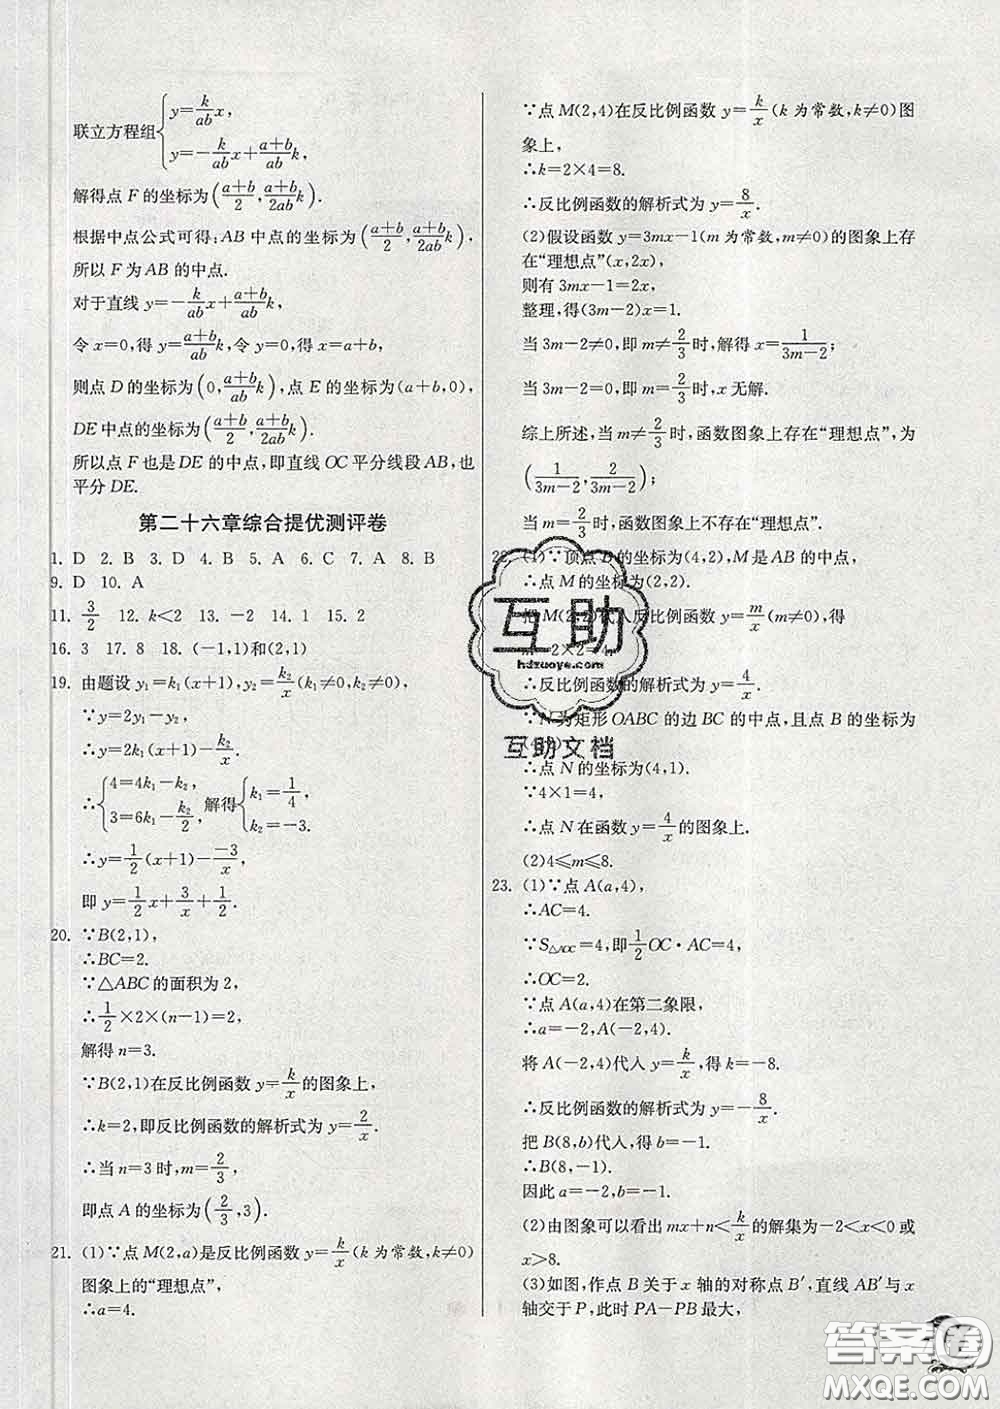 联立方程组{y=k/ab x, y=-k/ab x+(a+b)/ab k,
解得点 F 的坐标为((a+b)/2,(a+b)/2ab k).
根据中点公式可得:AB 中点的坐标为((a+b)/2,(a+b)/2ab k),
所以 F 为 AB 的中点.
对于直线 y=-k/ab x+(a+b)/ab k,
令 x=0,得 y=(a+b)/ab k,令 y=0,得 x=a+b,
则点 D 的坐标为(0,(a+b)/ab k),点 E 的坐标为(a+b,0),
DE 中点的坐标为((a+b)/2,(a+b)/2ab k).
所以点 F 也是 DE 的中点,即直线 OC 平分线段 AB,也
平分 DE.
第二十六章综合提优测评卷
1. D 2. B 3. D 4. B 5. A 6. C 7. A 8. B
9. D 10. A
11. 3/2 12. k<2 13. -2 14. 1 15. 2
16. 3 17. 8 18. (-1,1)和(2,1)
19. 由题设 y₁=k₁(x+1),y₂=k₂/x(k₁≠0,k₂≠0),
∵y=2y₁-y₂,
∴y=2k₁(x+1)-k₂/x.
∴{4=4k₁-k₂, 3=6k₁-k₂/2, 解得{k₁=1/4, k₂=-3.
∴y=1/2(x+1)-(-3)/x,
即 y=1/2x+3/x+1/2.
20. ∵B(2,1),
∴BC=2.
∵△ABC 的面积为 2,
∴1/2×2×(n-1)=2,
解得 n=3.
∵B(2,1)在反比例函数 y=k/x的图象上,
∴k=2,即反比例函数的解析式为 y=2/x.
∴当 n=3 时,m=2/3,
即点 A 的坐标为(2/3,3).
21. (1)∵点 M(2,a)是反比例函数 y=k/x(k 为常数,k≠0)
图象上的“理想点”,
∴a=4.
∵点 M(2,4)在反比例函数 y=k/x(k 为常数,k≠0)图
象上,
∴k=2×4=8.
∴反比例函数的解析式为 y=8/x.
(2)假设函数 y=3mx-1(m 为常数,m≠0)的图象上存
在“理想点”(x,2x),
则有 3mx-1=2x,
整理,得(3m-2)x=1.
当 3m-2≠0,即 m≠2/3时,解得 x=1/(3m-2);
当 3m-2=0,即 m=2/3时,x 无解.
综上所述,当 m≠2/3时,函数图象上存在“理想点”,为
(1/(3m-2),2/(3m-2));
当 m=2/3时,函数图象上不存在“理想点”.
22. (1)∵顶点 B 的坐标为(4,2),M 是 AB 的中点,
∴点 M 的坐标为(2,2).
把 M(2,2)代入反比例函数 y=m/x(m≠0),得
m=2×2=4.
∴反比例函数的解析式为 y=4/x.
∵N 为矩形 OABC 的边 BC 的中点,且点 B 的坐标为
(4,2),
∴点 N 的坐标为(4,1).
∵4×1=4,
∴点 N 在函数 y=4/x的图象上.
(2)4≤m≤8.
23. (1)∵点 A(a,4),
∴AC=4.
∵S△AOC=4,即1/2OC·AC=4,
∴OC=2.
∵点 A(a,4)在第二象限,
∴a=-2,A(-2,4).
将 A(-2,4)代入 y=k/x,得 k=-8.
∴反比例函数的解析式为 y=-8/x.
把 B(8,b)代入,得 b=-1.
∴B(8,-1).
因此 a=-2,b=-1.
(2)由图象可以看出 mx+n<k/x的解集为-2<x<0 或
x>8.
(3)如图,作点 B 关于 x 轴的对称点 B′,直线 AB′与 x
轴交于 P,此时 PA-PB 最大,
互助
hdzuoye.com
互助文档
答案圈
MXQE.COM